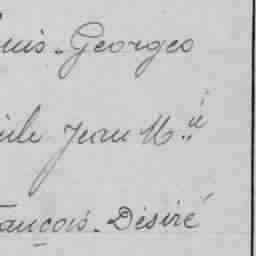 ouis-Georges
ile Jean M.ie
rançois-Désiré